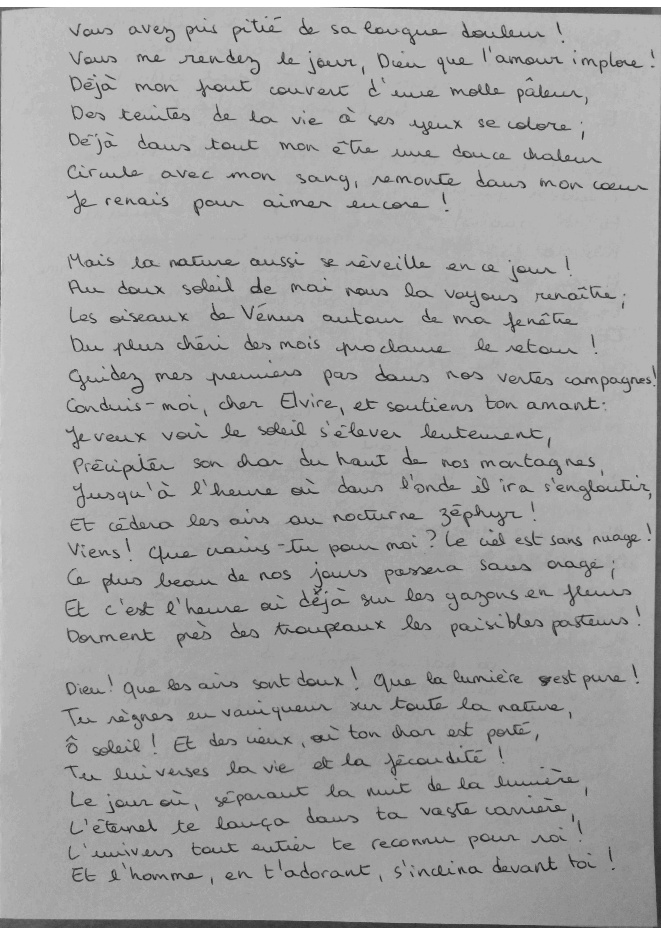 Vous avez pris pitié de sa longue douleur !
Vous me rendez le jour, Dieu que l'amour implore !
Déjà mon front couvert d'une molle pâleur,
Des teintes de la vie à ses yeux se colore ;
Déjà dans tout mon être une douce chaleur
Circule avec mon sang, remonte dans mon cœur
Je renais pour aimer encore !

Mais la nature aussi se réveille en ce jour !
Au doux soleil de mai nous la voyons renaître ;
Les oiseaux de Vénus autour de ma fenêtre
Du plus chéri des mois proclame le retour !
Guidez mes premiers pas dans nos vertes campagnes !
Conduis-moi, cher Elvire, et soutiens ton amant :
Je veux voir le soleil s'élever lentement,
Précipiter son char du haut de nos montagnes,
Jusqu'à l'heure où dans l'onde il ira s'engloutir,
Et cédera les airs au nocturne zéphyr !
Viens ! Que crains-tu pour moi ? Le ciel est sans nuage !
Ce plus beau de nos jours passera sans orage ;
Et c'est l'heure où déjà sur les gazons en fleurs
Dorment près des troupeaux les paisibles pasteurs !

Dieu ! Que les airs sont doux ! Que la lumière est pure !
Tu règnes en vainqueur sur toute la nature,
Ô soleil ! Et des cieux, où ton char est porté,
Tu lui verses la vie et la fécondité !
Le jour où, séparant la nuit de la lumière,
L'éternel te lança dans ta vaste carrière,
L'univers tout entier te reconnu pour roi !
Et l'homme, en t'adorant, s'inclina devant toi !